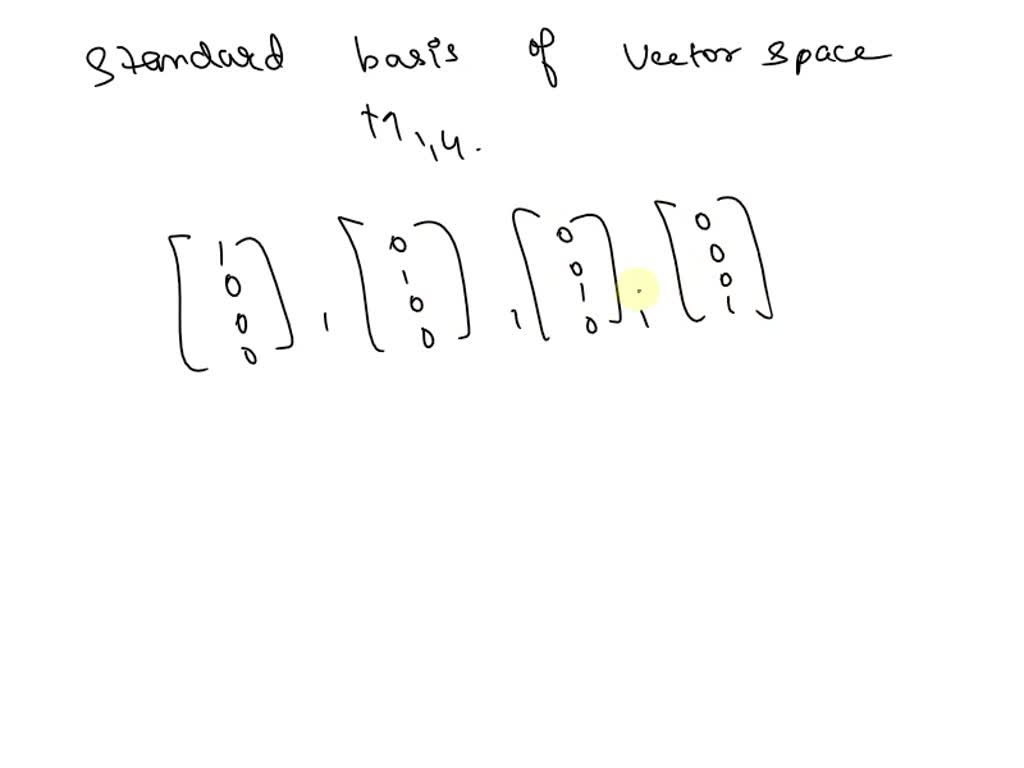 Standard basis of Vector space
M1,4.
[1 0 0 0], [0 1 0 0], [0 0 1 0], [0 0 0 1]